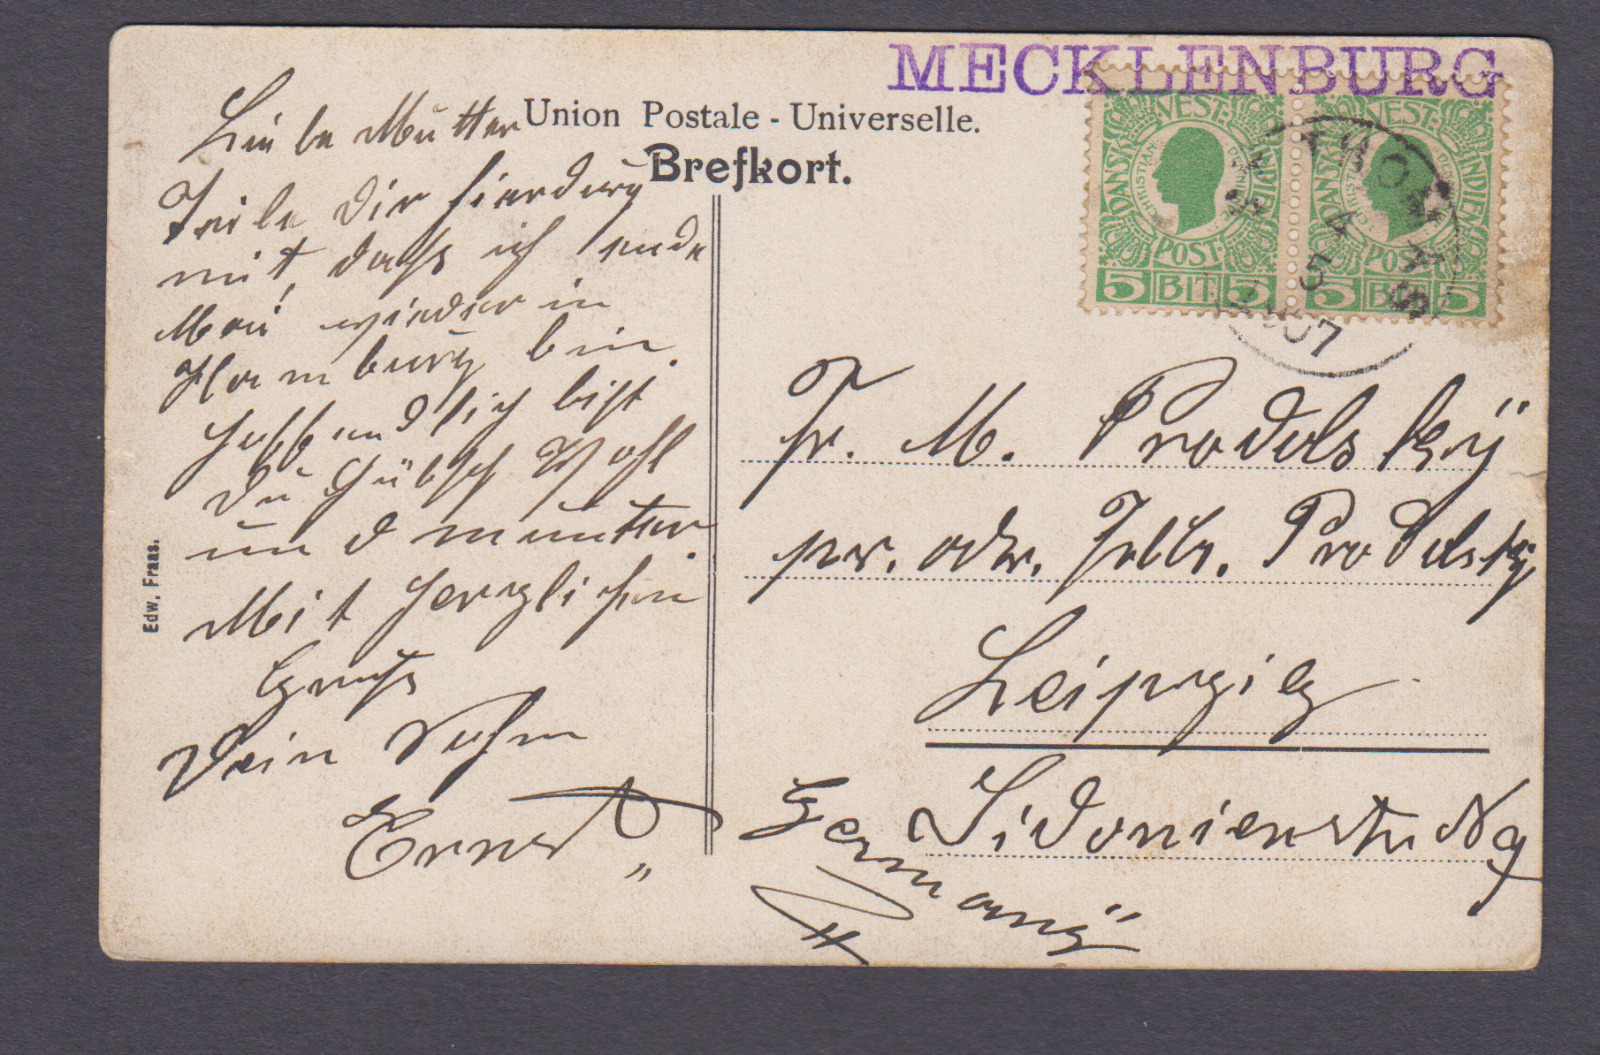 MECKLENBURG
Union Postale - Universelle.
Brefkort.
DANSK VEST INDIEN
POST
5 BIT 5
DANSK VEST INDIEN
POST
5 BIT 5
ST. THOMAS
4 5 1907
Liebe Mutter
Teile Dir hierdurch
mit, dass ich ende
Mai wieder in
Hamburg bin.
hoffendlich bist
Du hübsch Wohl
und munter.
Mit herzlichen
Gruss
Dein Sohn
Ernst
Edw. Fraas.
Fr. M. Prodolsky
pr. adr. Prodolsky
Leipzig
Sidonienstr No
Germany